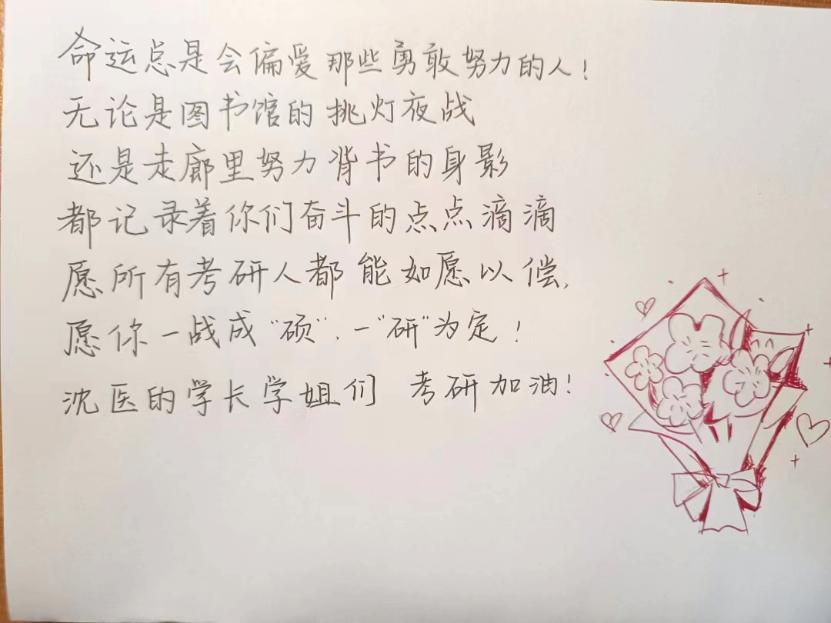 命运总是会偏爱那些勇敢努力的人！
无论是图书馆的挑灯夜战
还是走廊里努力背书的身影
都记录着你们奋斗的点点滴滴
愿所有考研人都能如愿以偿,
愿你一战成“硕”、一“研”为定！
沈医的学长学姐们 考研加油！